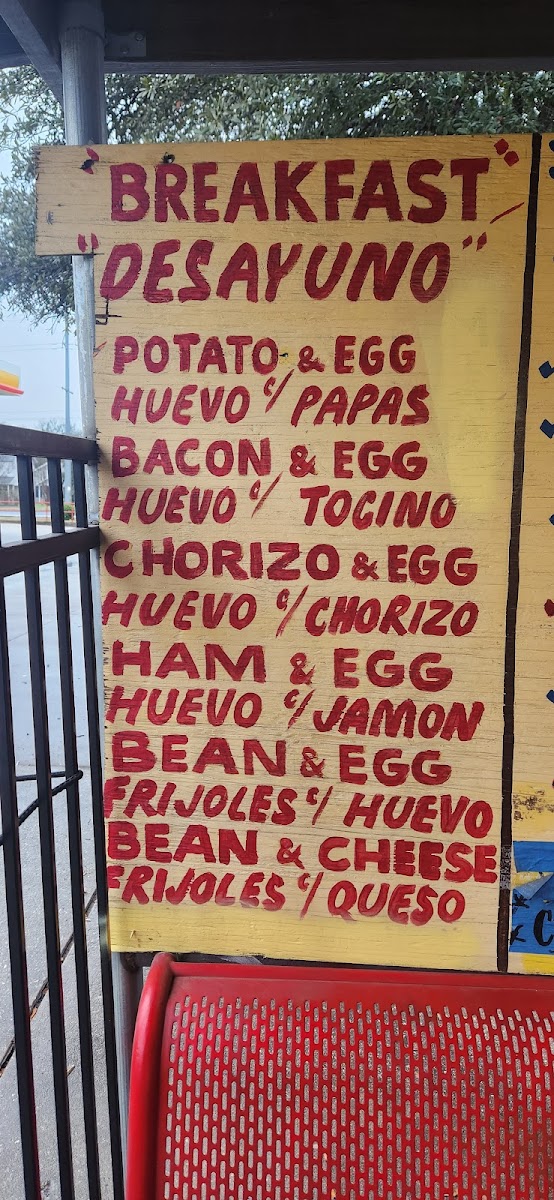 "BREAKFAST"
"DESAYUNO"
POTATO & EGG
HUEVO c/ PAPAS
BACON & EGG
HUEVO c/ TOCINO
CHORIZO & EGG
HUEVO c/ CHORIZO
HAM & EGG
HUEVO c/ JAMON
BEAN & EGG
FRIJOLES c/ HUEVO
BEAN & CHEESE
FRIJOLES c/ QUESO